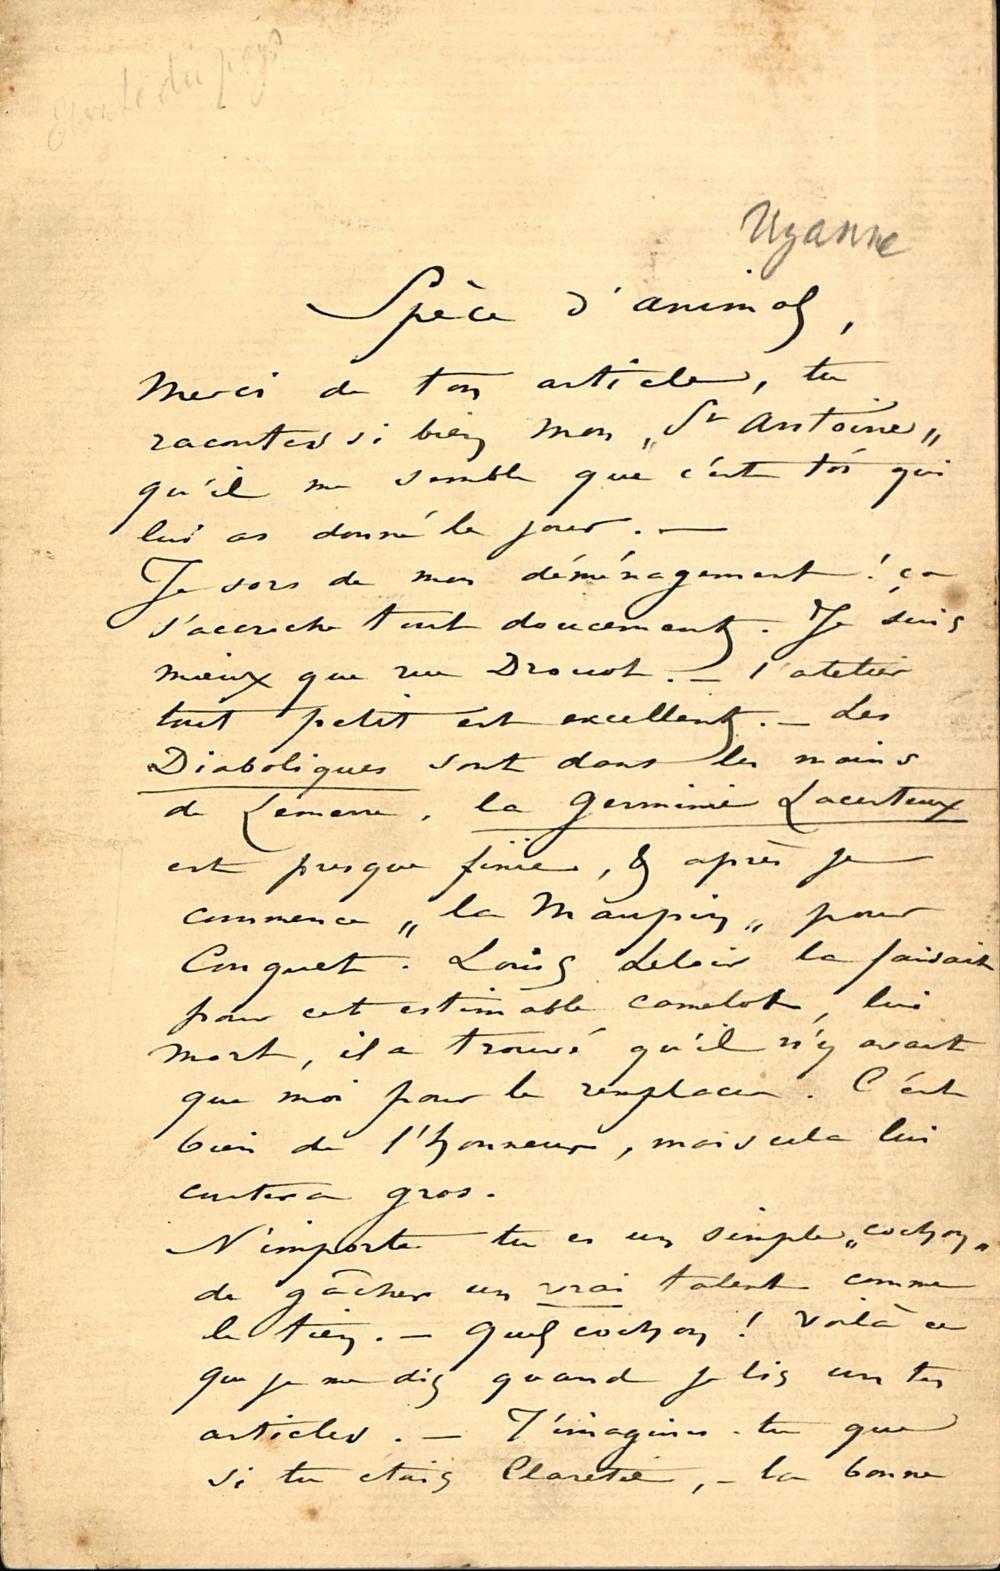 du pays
Uzanne
Spèce d'animal,
Merci de ton article, tu
racontes si bien mon „St Antoine„
qu'il me semble que c'est toi qui
lui as donné le jour. —
Je sors de mon déménagement ! ça
s'accroche tout doucement. Je suis
mieux que rue Drouot. — l'atelier
tout petit est excellent. — Les
Diaboliques sont dans les mains
de Lemerre, la Germinie Lacerteux
est presque finie, & après je
commence „la Maupin„ pour
Conquet. Louis Leloir la faisait
pour cet estimable camelot, lui
mort, il a trouvé qu'il n'y avait
que moi pour le remplacer. C'est
bien de l'honneur, mais cela lui
coutera gros.
N'importe tu es un simple „cochon„
de gâcher un vrai talent comme
le tien. — Quel cochon ! Voilà ce
que je me dis quand je lis un tes
articles. — T'imagines-tu que
si tu étais Claretie, — la bonne